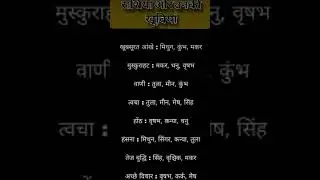 राशियां और उनकी
खूबियां
खूबसूरत आंखे : मिथुन, कुंभ, मकर
मुस्कुराहट : मकर, धनु, वृषभ
वाणी : तुला, मीन, कुंभ
त्वचा : तुला, मीन, मेष, सिंह
होंठ : वृषभ, कन्या, धनु
हसना : मिथुन, सिंगर, कन्या, तुला
तेज बुद्धि : सिंह, वृश्चिक, मकर
अच्छे विचार : वृषभ, कर्क, मेष